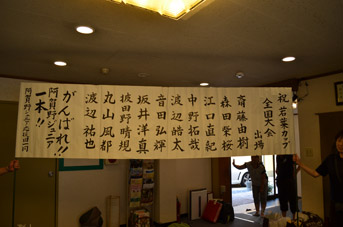 祝 若葉カップ
全国大会
出場
斎藤由樹
森田栄桜
江口直紀
中野拓哉
渡辺皓太
音田弘輝
坂井洋真
披田野晴規
丸山風都
渡辺祐也
がんばれ!!
阿賀野ジュニア
一本!!